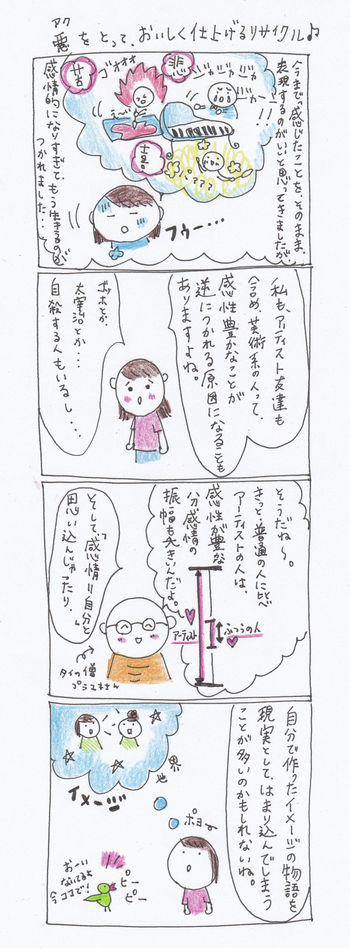 悪をとって、おいしく仕上げるリサイクル♪
アク
今まで「感じたことを、そのまま、
表現するのがいいと思ってきましたが
感情的になりすぎて、もう生きるのが
つかれました・・・
ゴオオオ
苦
悲
喜
ジャジャジャ
ガーン
!!
???
フゥー・・・
私も、アーティスト友達も
含め、芸術系の人って、
感性豊かなことが
逆につかれる原因になることも
ありますよね。
ゴッホとか、
太宰治とか・・・
自殺する人もいるし・・・
そうだね〜。
きっと普通の人に比べ
アーティストの人は、
感性が豊かな
分、感情の
振幅も大きいんだよ。
ふつうの人
アーティスト
そして、「感情=自分」と
思い込んじゃったり。
タイの僧
プラユキさん
自分で作ったイメージの物語を
現実として、はまり込んでしまう
ことが多いのかもしれないね。
世界
イメージ
ポヨ〜
ピー
ピー
おーい
ないてるよ
今ココで!